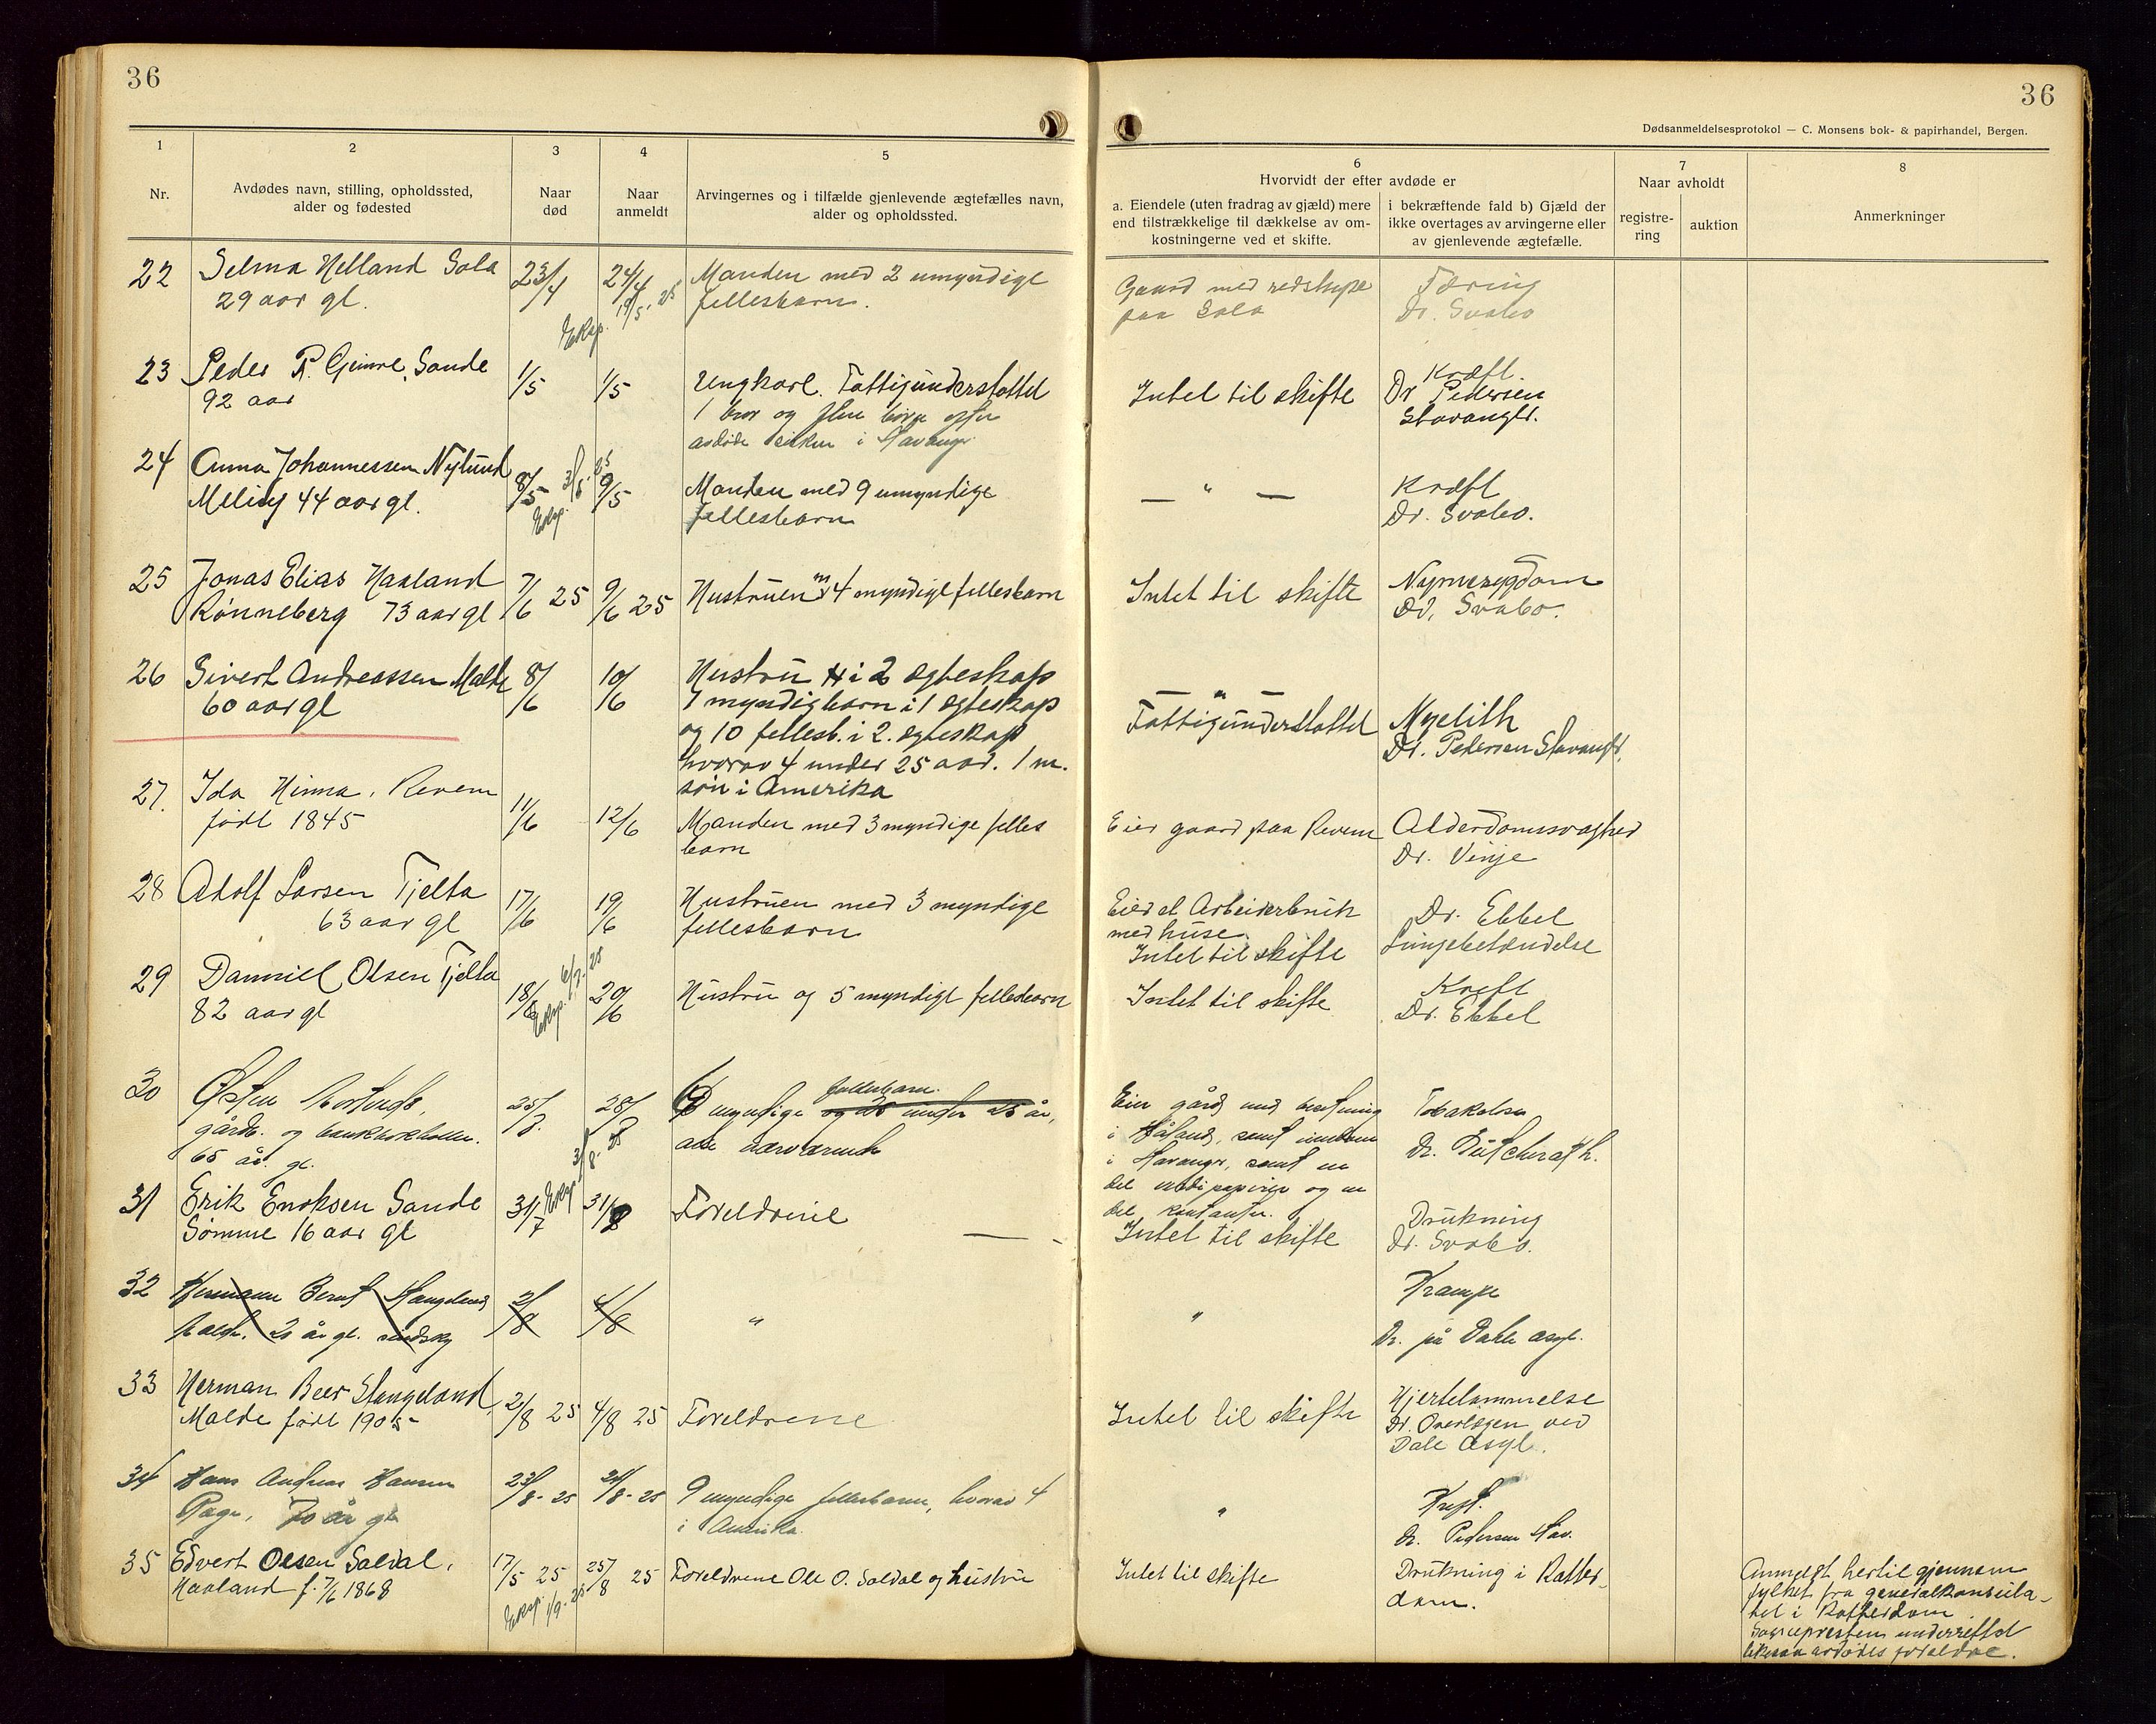 36
36
Dødsanmeldelsesprotokol — C. Monsens bok- & papirhandel, Bergen.
1
2
3
4
5
6
7
8
Nr.
Avdødes navn, stilling, opholdssted,
alder og fødested
Naar
død
Naar
anmeldt
Arvingernes og i tilfælde gjenlevende ægtefælles navn,
alder og opholdssted.
Hvorvidt der efter avdøde er
a. Eiendele (uten fradrag av gjæld) mere
end tilstrækkelige til dækkelse av om-
kostningerne ved et skifte.
i bekræftende fald b) Gjæld der
ikke overtages av arvingerne eller
av gjenlevende ægtefælle.
Naar avholdt
registre-
ring
auktion
Anmerkninger
22
Selma Helland Sola
29 aar gl.
23/4
24/4
Eksp. 19/5. 25
Manden med 2 umyndige
fellesbarn.
Gaard med redskape
paa Sola
Tæring
Dr. Svabo
23
Peder R. Gimre, Sande
92 aar
1/5
1/5
Ungkarl. Fattigunderstøttet
1 bror og flere
avdøde i Stavanger
Intet til skifte
Kræft
Dr Pedersen
Stavanger.
24
Anna Johannessen Nylund
Meling 44 aar gl.
8/5
9/5
Eksp.
Manden med 9 umyndige
fellesbarn
— " —
Kræft
Dr. Svabo.
25
Jonas Elias Haaland
Rønneberg 73 aar gl
7/6 25
9/6 25
Hustruen m 4 myndige fellesbarn
Intet til skifte
Nyresygdom
Dr. Svabo.
26
Sivert Andreassen Malde
60 aar gl
8/6
10/6
Hustru i 2 egteskap
1 myndig barn i 1 egteskap
og 10 fellesb. i 2. egteskap
hvorav 4 under 25 aar. 1 m.
søn i Amerika
— " —
Fattigunderstøttet
Dr. Pedersen Stavanger.
27.
Ida Hinna, Revem
født 1845
11/6
12/6
Manden med 3 myndige felles
barn
Eier gaard paa Revem
Alderdomssvaghed
Dr. Vinje
28
Adolf Larsen Tjelta
63 aar gl
17/6
19/6
Hustruen med 3 myndige
fellesbarn
Eier et Arbeiderbruk
med huse.
Intet til skifte
Dr. Ebbel
Lungebetændelse
29
Danniel Olsen Tjelta
82 aar gl
18/6
20/6
Eksp. 6/7. 25
Hustru og 5 myndige fellesbarn
Intet til skifte
Kreft
Dr. Ebbel
30
Østen
gårdb. og bankbokholder.
65 år. gl.
25/7.
28/7
Eksp. 3/8. 25
6 myndige fellesbarn under 25 år,
alle nærværende
Eier gård med besetning
i Håland, samt
i Stavanger, samt en
del verdipapirer og en
del kontanter.
31
Erik Enoksen Sande
Sømme 16 aar gl
31/7
31/8
Foreldrene
Intet til skifte
Drukning
Dr. Svabo.
32
Hermann Bernt Stangeland
Malde. 20 år gl. sindssyg
2/8
4/8
"
"
Krampe
Dr. på Dale asyl.
33
Herman Beer Stangeland
Malde født 1905
2/8 25
4/8 25
Foreldrene
Intet til skifte
Hjertelammelse
Dr. Overlegen ved
Dale Asyl.
34
Hans Andreas Hansen
Rage, 70 år gl.
23/8 - 25
24/8 - 25
9 myndige fellesbarn, hvorav 4
i Amerika.
"
Kreft.
Dr. Pedersen Stav.
35
Edvert Olsen Soldal,
Haaland f. 7/6 1868
17/5 25
25/8 25
Eksp. 1/9. 25
Foreldrene Ole O. Soldal og hustru
Intet til skifte
Drukning i Rotter-
dam.
Anmeldt hertil gjennem
fylket fra generalkonsula-
tet i Rotterdam
Sognepresten underrettet
likesaa avdødes foreldre.